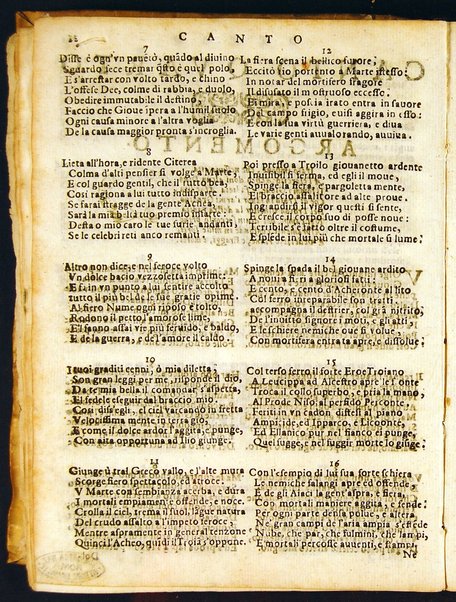 CANTO
7
Disse e ogn'vn pauetò, quãdo al diuino
Sguardo fece tremar q̃sto e quel polo,
E s'arrestar con volto tardo, e chino
L'offese Dee, colme di rabbia, e duolo,
Obedire immutabile il destino,
Faccio che Gioue ipera a l'humil stuolo
Ogni causa minore a l'altra voglia
De la causa maggior pronta s'incroglia.
8
Lieta all'hora, e ridente Citerea
Colma d'alti pensier si volge a Marte,
E col guardo gentil, che il tutto bea,
Cosi ragiona il tutto indisparte.
Se farai stragge de la gente Achea,
Sarà la mia beltà tuo premio in parte
Desta o mio caro le tue furie andanti,
Se le celebri reti anco rimanti
9
Altro non dice, e nel feroce volto
Vn dolce bacio vezzosetta imprime:
E fa in vn punto a lui sentire accolto
tutto il piu bel de le sue gratie opime.
Al fiero Nume ogni riposo è tolto,
Rodono il petto l'amorose lime,
El fanno assai vie più feruido, e baldo,
E de la guerra, e del'amore il caldo.
10
I tuoi graditi cenni, ò mia diletta,
Son gran leggi per me, risponde il dio,
Da te mia bella il comandar s'aspetta,
El fedele eseguir dal braccio mio.
Cosi disse gli, el ciel varcando in fretta
Velocissima mente in terra gio,
E come il dolce ardor l'aggita, e punge,
Con alta opportuna ad Ilio giunge.
11
Giunge ù tral Greco vallo, e l'alte mura
Scorge fiero spettacolo, ed atroce.
V Marte con sembianza acerba, e dura
I mortali empiamente offende, e noce.
Crolla il ciel, trema il suol, lãgue natura
Del crudo assalto a l'impeto feroce,
Mentre aspramente in general tenzone
Quinci l'Acheo, quidi il Troiã s'oppone.
12
La fiera scena il bellico furore,
Eccitò rio portento a Marte istesso:
In notar del mortifero fragore
Il disusato il mostruoso eccesso.
Ei mira, e poscia irato entra in fauore
Del campo frigio, e ui s'aggira in esso:
E con la sua virtù guerriera, e diua
Le varie genti auualorando, auuiua.
13
Poi presso a Troilo giouanetto ardente
Inuisibil si ferma, ed egli il moue,
Spinge la fiera, e pargoletta mente,
El braccio assalitore ad alte proue.
Ingrandirsi il vigor questi si sente,
E cresce il corpo suo di posse noue:
Terribile s'è fatto oltre il costume,
E splede in lui più che mortale ũ lume.
14
Spinge la spada il bel giouane ardito
A nomi a fieri a gloriosi fatti:
E cento, e cento d'Acheronte al lito
Col ferro irreparabile son tratti,
accompagna il destrier, col gia nitrito,
De l'inuitto signore i moti, e gli atti,
E le schiere nemiche oue si volue
Con mortifera entrata apre, e dissolue;
15
Col terso ferro il forte Eroe Troiano
A Leucippa ad Alcestro apre le fronte
Troca il collo superbo, e pria la mano,
Al Prode Niso, al perfido Percorte.
Feriti in vn cadon distesi al piano
Ampi; ide, ed Ipparco, e Licoonte,
Ed Ellanico pur nel fianco ei punge,
Quel fugge, e nel fuggir morte lo giunge.
16
Con l'esempio di lui sua forte schiera
Le nemiche salangi apre ed offende,
E de gli Aiaci la gent'aspra, e fiera,
Con mortali maniere aggita, e fende,
Per ogni parte densa polue, e altera,
Ne' gran campi de l'aria ampia s'estẽde
Nube, che par, che fulmini, che lampi,
E mortali percosse auuenti, e stampi.
Ne